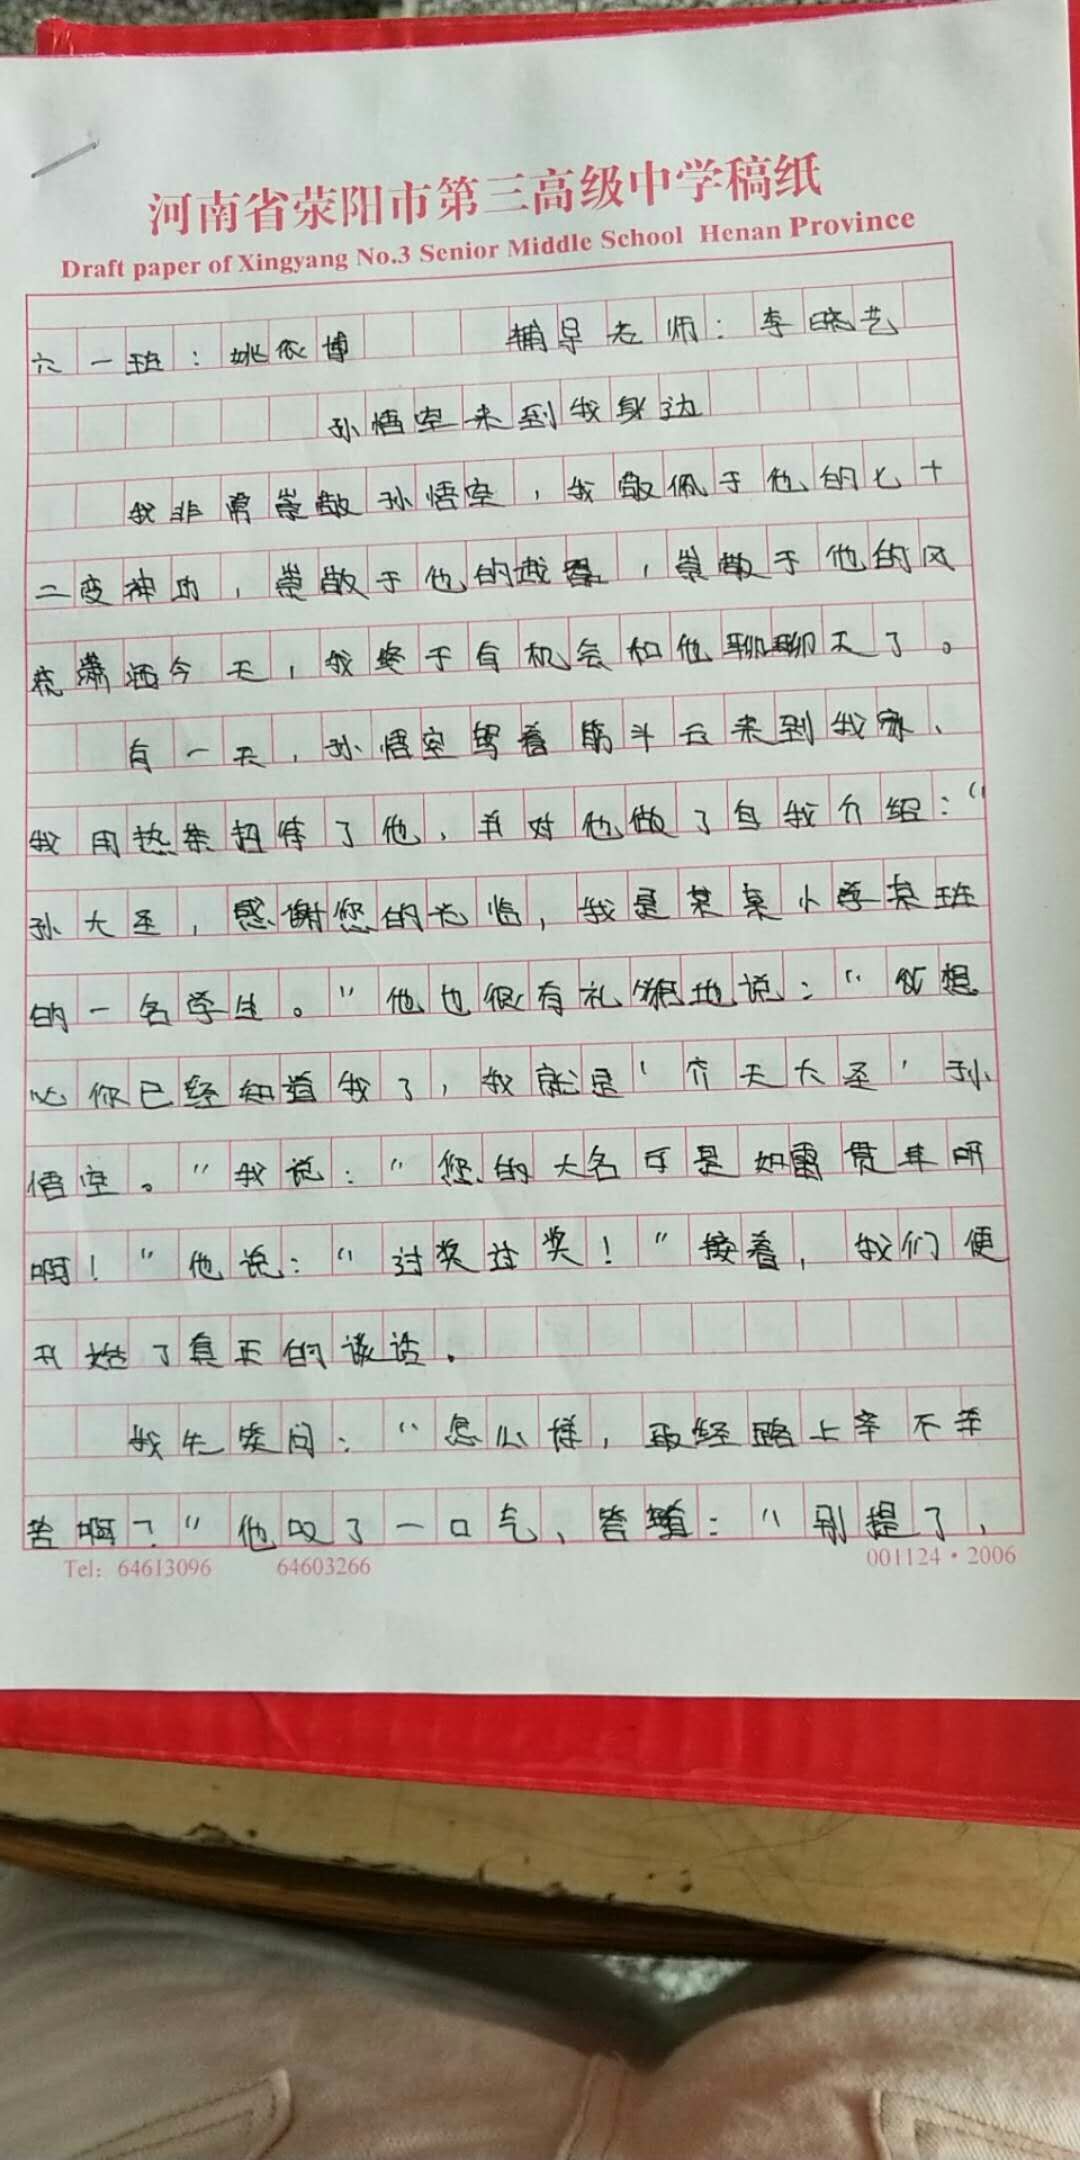 河南省荥阳市第三高级中学稿纸
Draft paper of Xingyang No.3 Senior Middle School Henan Province
六一班：姚依博 辅导老师：李晓艺
孙悟空来到我身边
我非常崇敬孙悟空，我敬佩于他的七十
二变神功，崇敬于他的，崇敬于他的风
流潇洒今天，我终于有机会和他聊聊天了。
有一天，孙悟空驾着筋斗云来到我家、
我用热茶招待了他，并对他做了自我介绍：“
孙大圣，感谢您的光临，我是某某小学某班
的一名学生。”他也很有礼貌地说：“我想
必你已经知道我了，我就是‘齐天大圣’孙
悟空。”我说：“您的大名可是如雷贯耳啊
啊！”他说：“过奖过奖！”接着，我们便
开始了真正的谈话．
我先笑问：“怎么样，取经路上辛不辛
苦啊？”他叹了一口气、答道：“别提了，
Tel: 64613096 64603266 001124·2006